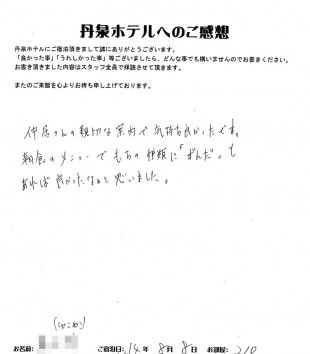 丹泉ホテルへのご感想
丹泉ホテルにご宿泊頂きまして誠にありがとうございます。
「良かった事」「うれしかった事」等ございましたら、どんな事でも構いませんのでお書きください。
お書き頂きました内容はスタッフ全員で拝読させて頂きます。
またのご来館を心よりお待ち申し上げております。
仲居さんの親切な案内で気持ち良かったです。
朝食のメニューでもちの種類に「ずんだ」も
あれば良かったなぁと思いました。
お名前: ご宿泊日: '14年 8月 8日 お部屋: 210